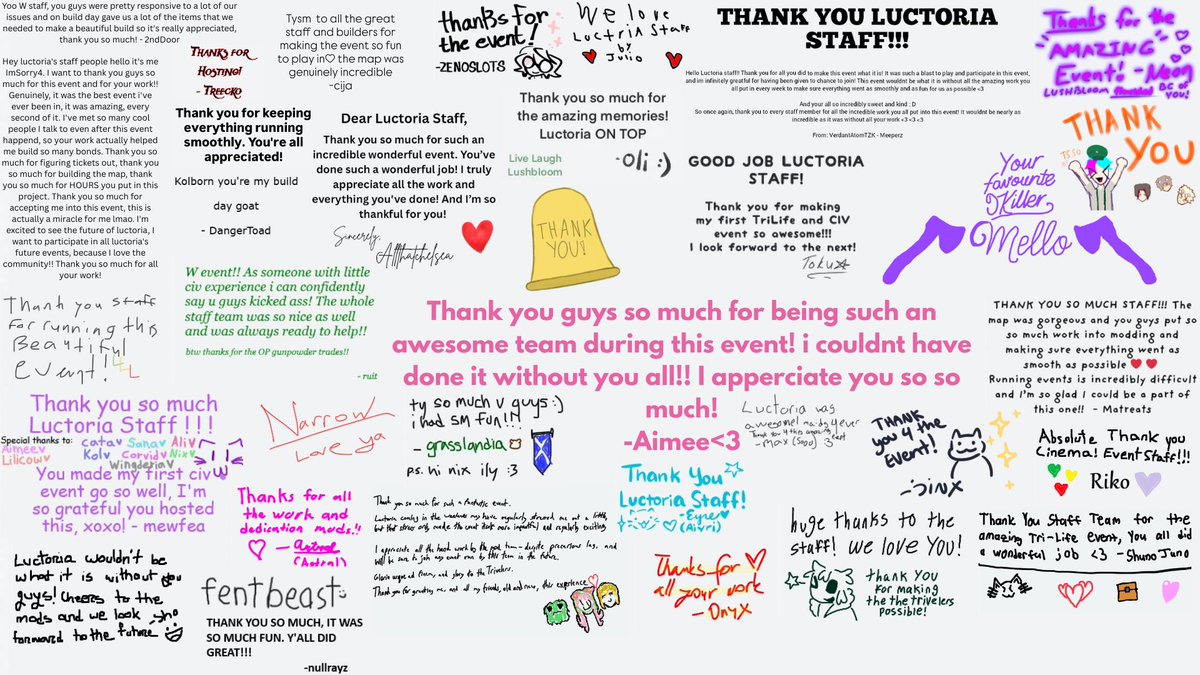 Yoo W staff, you guys were pretty responsive to a lot of our
issues and on build day gave us a lot of the items that we
needed to make a beautiful build so it's really appreciated,
thank you so much! - 2ndDoor
Hey luctoria's staff people hello it's me
ImSorry4. I want to thank you guys so
much for this event and for your work!!
Genuinely, it was the best event i've
ever been in, it was amazing, every
second of it. I've met so many cool
people I talk to even after this event
happend, so your work actually helped
me build so many bonds. Thank you so
much for figuring tickets out, thank you
so much for building the map, thank
you so much for HOURS you put in this
project. Thank you so much for
accepting me into this event, this is
actually a miracle for me lmao. I'm
excited to see the future of luctoria, I
want to participate in all luctoria's
future events, because I love the
community!! Thank you so much for all
your work!
Thanks for
Hosting!
- Treecko
Tysm to all the great
staff and builders for
making the event so fun
to play in♡ the map was
genuinely incredible
-cija
thanBs for
the event!
-ZENOSLOTS
We love
Luctoria Staff
by
Julio
THANK YOU LUCTORIA
STAFF!!!
Hello Luctoria staff!! Thank you for all you did to make this event what it is! It was such a blast to play and participate in this event,
and im infinitely greatful for having been given to chance to join! This event wouldnt be what it is without all the amazing work you
all put in every week to make sure everything went as smoothly and as fun for us as possible <3
And your all so incredibly sweet and kind : D
So once again, thank you to every staff member for all the incredible work you all put into this event! It wouldnt be nearly as
incredible as it was without all your work <3 <3 <3
From: VerdantAtomTZK - Meeperz
Thanks for the
"AMAZING"
Event! -Neon
LUSHBLOOM
BC of
YOU!
Thank you for keeping
everything running
smoothly. You're all
appreciated!
Kolborn you're my build
day goat
- DangerToad
Dear Luctoria Staff,
Thank you so much for such an
incredible wonderful event. You've
done such a wonderful job! I truly
appreciate all the work and
everything you've done! And I'm so
thankful for you!
Sincerely,
Allthatchelsea
Thank you so much for
the amazing memories!
Luctoria ON TOP
-oli :)
Live Laugh
Lushbloom
THANK
YOU!
GOOD JOB LUCTORIA
STAFF!
Thank you for making
my first TriLife and CIV
event so awesome!!!
I look forward to the next!
Toku☆
Your
favourite
Killer
Mello
THANK
YOU
Thank you staff
for running this
Beautiful
event!
W event!! As someone with little
civ experience i can confidently
say u guys kicked ass! The whole
staff team was so nice as well
and was always ready to help!!
btw thanks for the OP gunpowder trades!!
- ruit
Thank you guys so much for being such an
awesome team during this event! i couldnt have
done it without you all!! I apperciate you so so
much!
-Aimee<3
THANK YOU SO MUCH STAFF!!! The
map was gorgeous and you guys put so
so much work into modding and
making sure everything went as
smooth as possible ♥♥
Running events is incredibly difficult
and I'm so glad I could be a part of
this one!! - Matreats
Thank you so much
Luctoria Staff ! ! !
Special thanks to: cata♥ Sana♥ Ali♥
Aimee♥ Kol♥ Corvid♥ Nix♥
Lilicow♥ Wingderia♥
You made my first civ
event go so well, I'm
so grateful you hosted
this, xoxo! - mewfea
Narrow
Love ya
ty so much v guys :)
i had SM FUN!!!
- grasslandia
ps. hi nix ily :3
Luctoria was
awesome!
Thank you 4 this amazing
-max (soop) 3
THANK
you 4 the
Event!
-Jinx
Absolute Thank you
Cinema! Event Staff!!!
Riko
Thanks for all
the work and
dedication mods!!
- Astral
(Astral)
Thank you so much for such a fantastic event.
I appreciate all the hard work by the
Thank you for greeting me, and all my friends, old and new, this experience.
Thank You
Luctoria Staff!
-Eyre
(Aivri)
Thanks for
all your work
- Onyx
huge thanks to the
staff! we love You!
thank You
For making
the the trivelers
possible!
Thank You Staff Team for the
amazing Tri-Life Event, You all did
a wonderful job <3 - Shuno Juno
Luctoria wouldn't be
what it is without you
guys! Cheers to the
mods and we look
forward to the future
fentbeast
THANK YOU SO MUCH, IT WAS
SO MUCH FUN. Y'ALL DID
GREAT!!!
-nullrayz